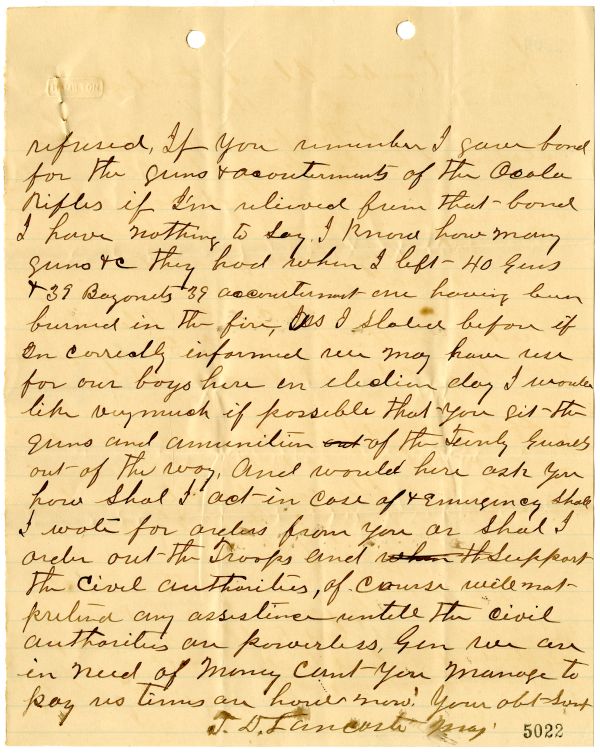 refused, If you remember I gave bond
for the guns & acouterments of the Ocala
Rifles if I'm relieved from that bond
I have nothing to say, I Know how many
guns &c they had when I left - 40 Guns
& 39 Bayonets 39 accouterment one having been
burned in the fire, As I stated before if
Im correctly informed we may have use
for our boys here on election day I would
like verymuch if possible that you git the
guns and amunition out of the Guards
out of the way, And would here ask you
how Shal I act in case of & Emergency Shall
I wate for orders from you or Shal I
order out the Troops and when th Support
the civil authorities, of course will not
any assistence untill the civil
authorities are powerless, Gen we are
in need of Money cant you manage to
pay us times are now! Your obt Svt
J. D. Lancaster Maj
5022